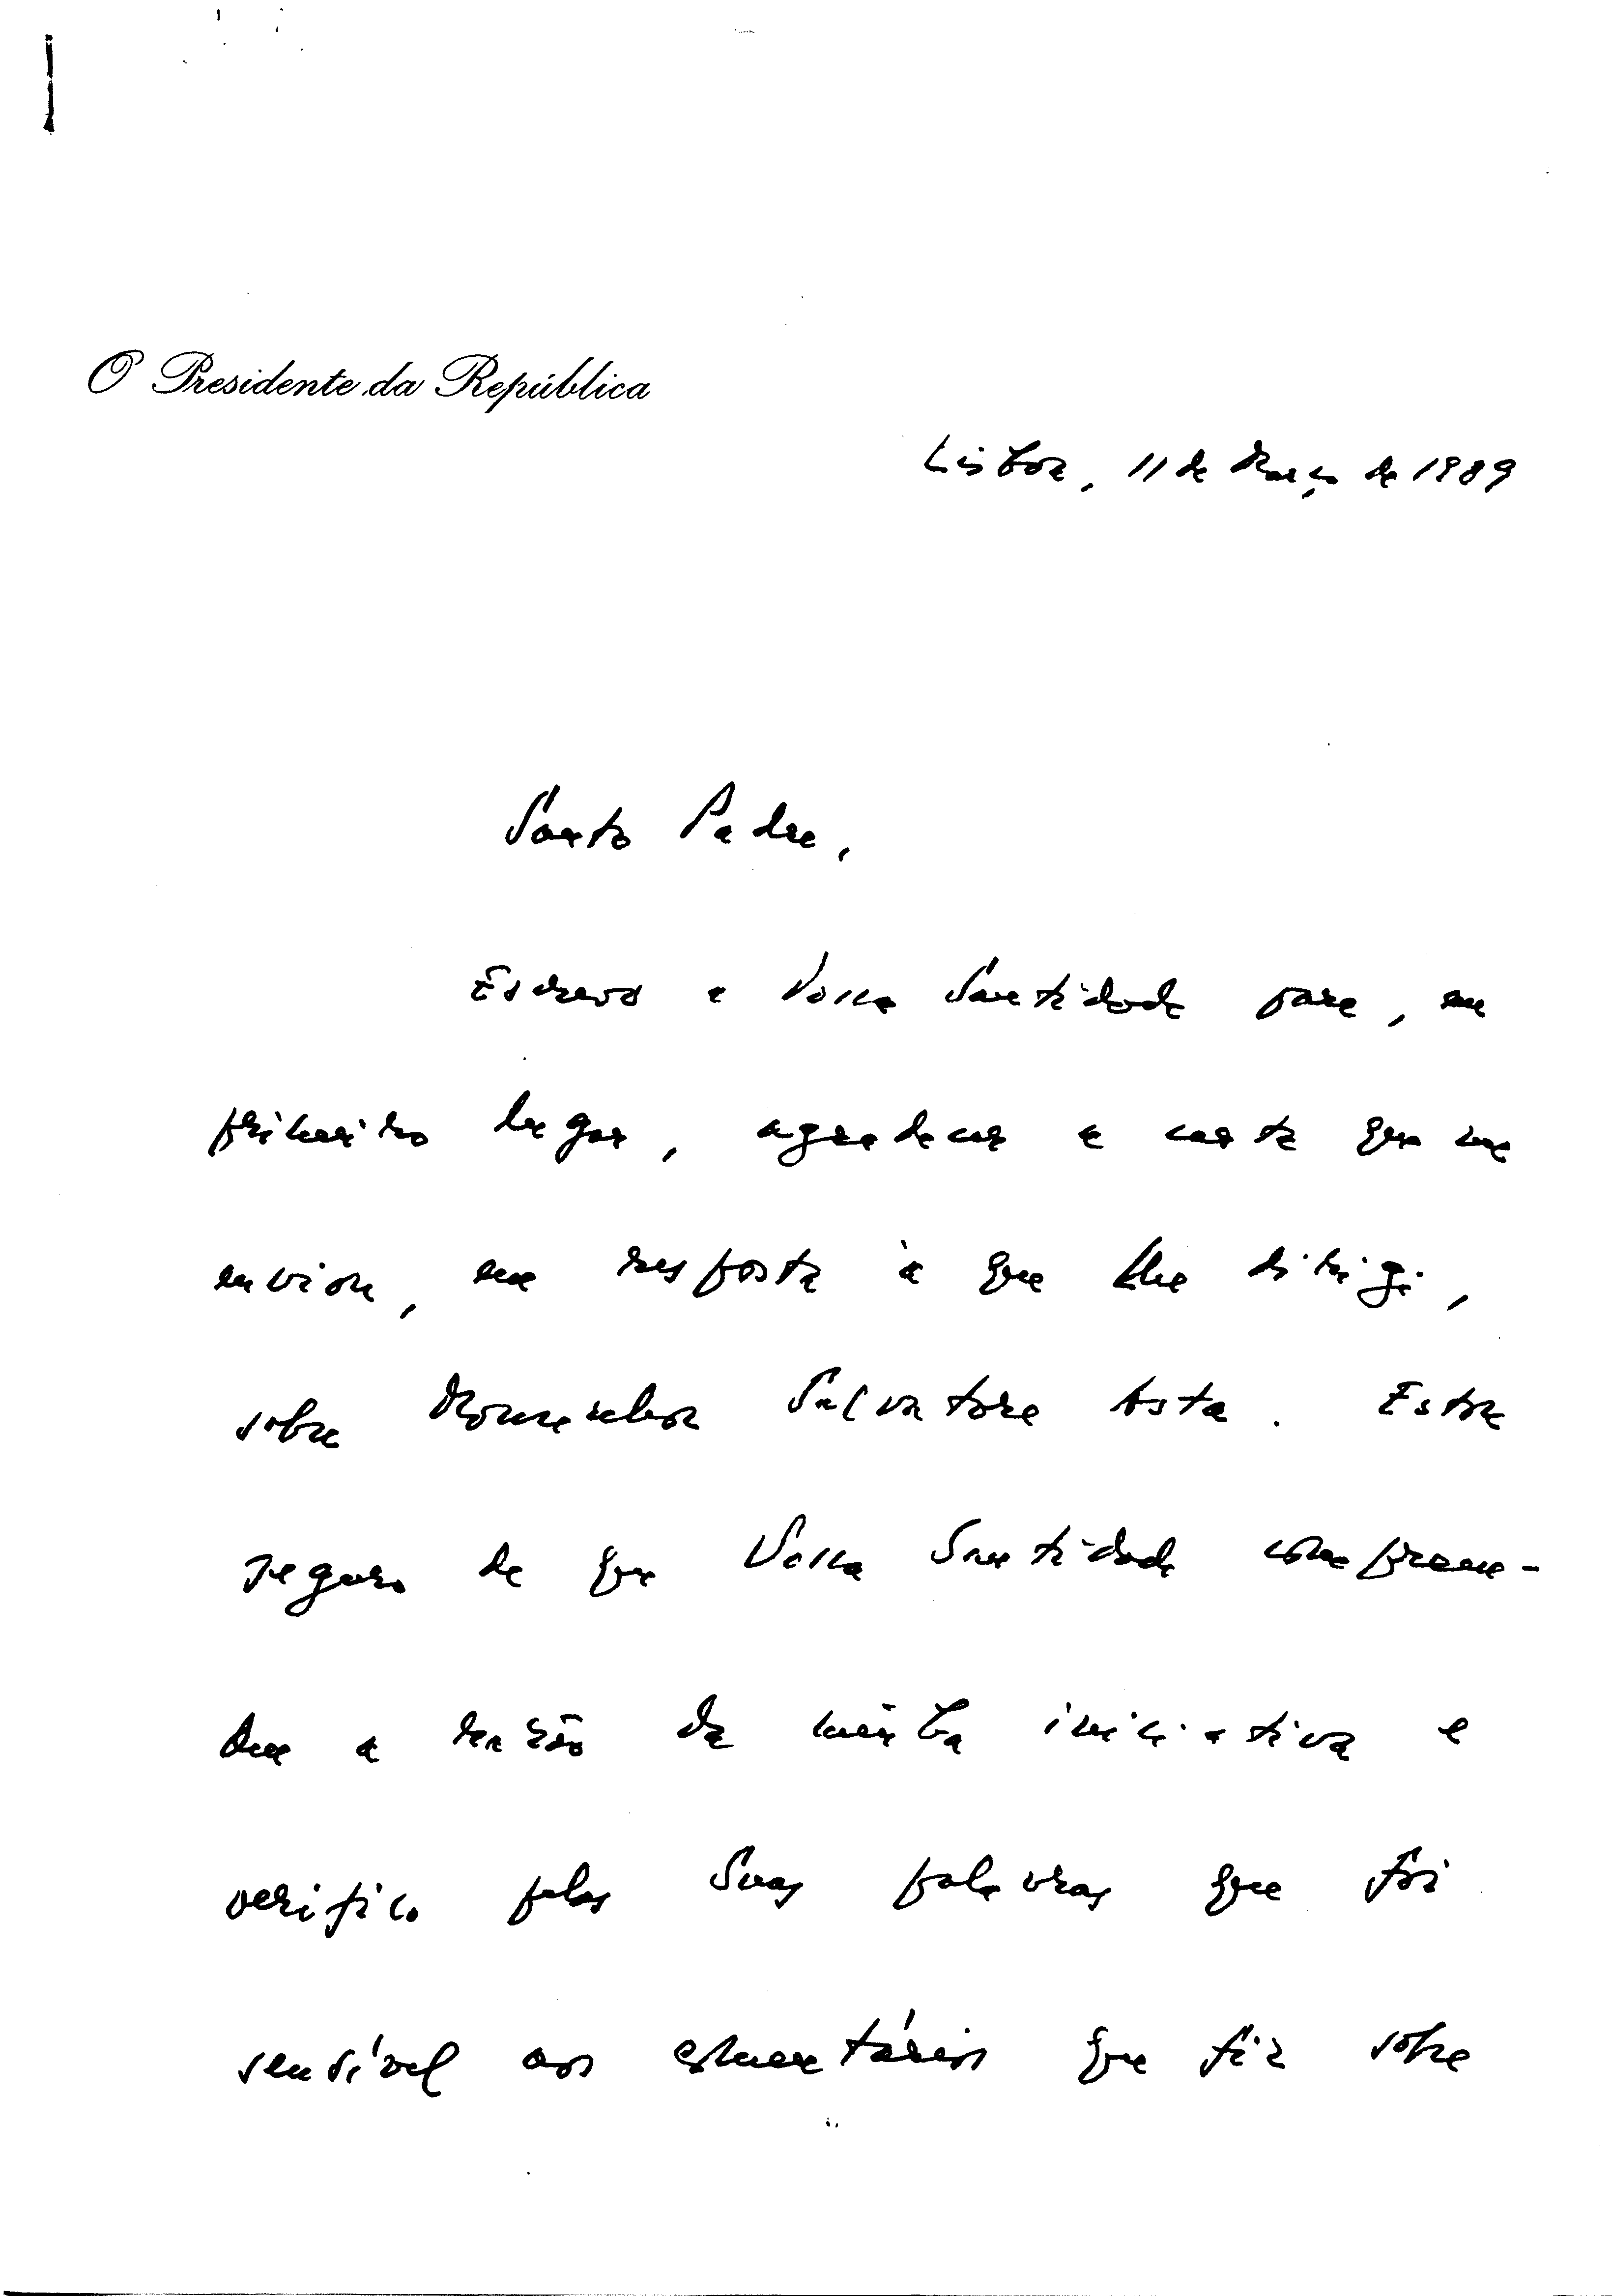 O Presidente da República
Lisboa, 11 de Março de 1989
Santo Padre,
Escrevo a Vossa Santidade para, em
primeiro lugar, agradecer a carta que me
enviou, em resposta à que lhe dirigi,
sobre Monsenhor Salvatore Asta. Estou
seguro de que Vossa Santidade compreen-
deu a razão da minha iniciativa e
verifico pelas Suas palavras que foi
sensível aos comentários que fiz sobre